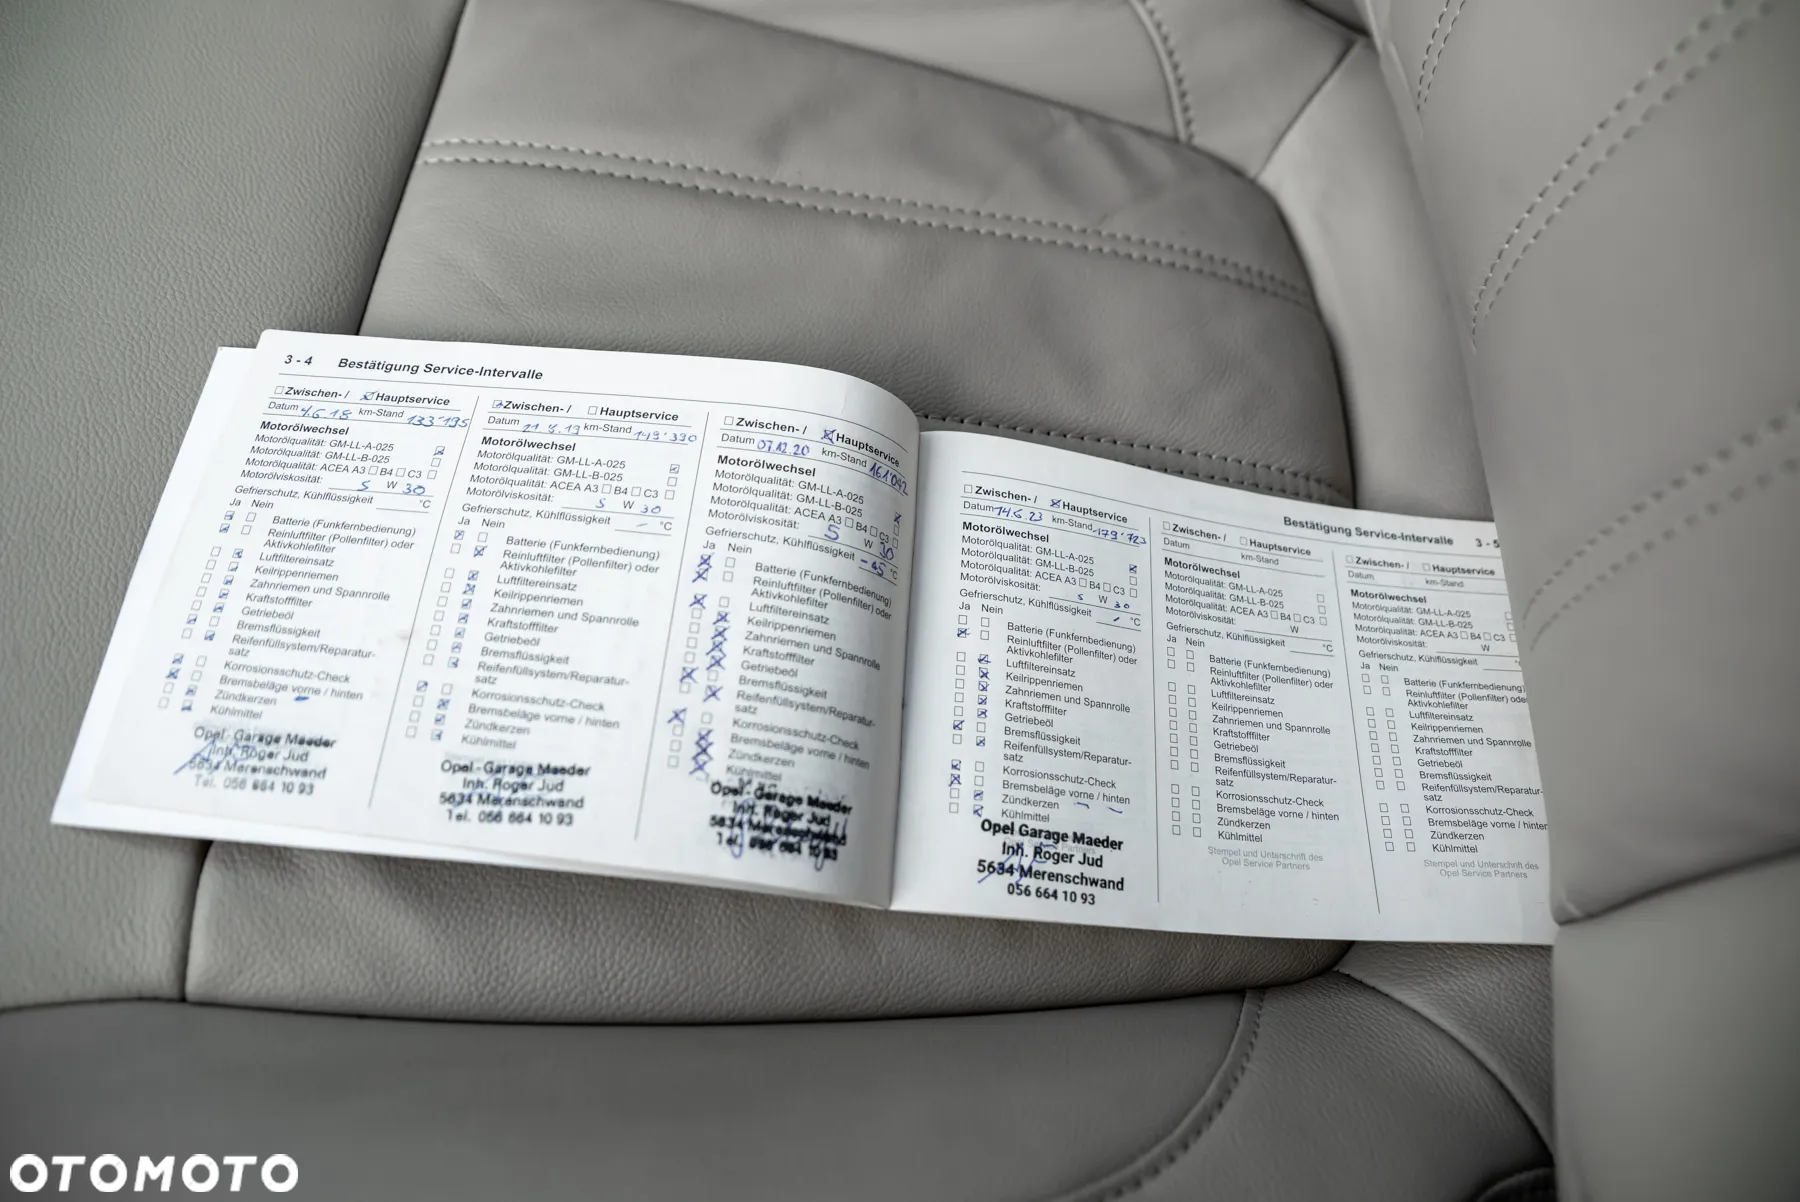 3 - 4 Bestätigung Service-Intervalle
Zwischen- / Hauptservice
Datum 4.6.18 km-Stand 133'195
Motorölwechsel
Motorölqualität: GM-LL-A-025
Motorölqualität: GM-LL-B-025
Motorölqualität: ACEA A3 B4 C3
Motorölviskosität: 5 W 30
Gefrierschutz, Kühlflüssigkeit °C
Ja Nein
Batterie (Funkfernbedienung)
Reinluftfilter (Pollenfilter) oder
Aktivkohlefilter
Luftfiltereinsatz
Keilrippenriemen
Zahnriemen und Spannrolle
Kraftstofffilter
Getriebeöl
Bremsflüssigkeit
Reifenfüllsystem/Reparatur-
satz
Korrosionsschutz-Check
Bremsbeläge vorne / hinten
Zündkerzen
Kühlmittel
Opel-Garage Maeder
Inh. Roger Jud
5634 Merenschwand
Tel. 056 664 10 93
Zwischen- / Hauptservice
Datum 21.8.19 km-Stand 149'390
Motorölwechsel
Motorölqualität: GM-LL-A-025
Motorölqualität: GM-LL-B-025
Motorölqualität: ACEA A3 B4 C3
Motorölviskosität: 5 W 30
Gefrierschutz, Kühlflüssigkeit - °C
Ja Nein
Batterie (Funkfernbedienung)
Reinluftfilter (Pollenfilter) oder
Aktivkohlefilter
Luftfiltereinsatz
Keilrippenriemen
Zahnriemen und Spannrolle
Kraftstofffilter
Getriebeöl
Bremsflüssigkeit
Reifenfüllsystem/Reparatur-
satz
Korrosionsschutz-Check
Bremsbeläge vorne / hinten
Zündkerzen
Kühlmittel
Opel-Garage Maeder
Inh. Roger Jud
5634 Merenschwand
Tel. 056 664 10 93
Zwischen- / Hauptservice
Datum 07.12.20 km-Stand 161'042
Motorölwechsel
Motorölqualität: GM-LL-A-025
Motorölqualität: GM-LL-B-025
Motorölqualität: ACEA A3 B4 C3
Motorölviskosität: 5 W 30
Gefrierschutz, Kühlflüssigkeit -45 °C
Ja Nein
Batterie (Funkfernbedienung)
Reinluftfilter (Pollenfilter) oder
Aktivkohlefilter
Luftfiltereinsatz
Keilrippenriemen
Zahnriemen und Spannrolle
Kraftstofffilter
Getriebeöl
Bremsflüssigkeit
Reifenfüllsystem/Reparatur-
satz
Korrosionsschutz-Check
Bremsbeläge vorne / hinten
Zündkerzen
Kühlmittel
Opel-Garage Maeder
Inh. Roger Jud
5634 Merenschwand
Tel. 056 664 10 93
Bestätigung Service-Intervalle 3 - 5
Zwischen- / Hauptservice
Datum 14.6.23 km-Stand 179'723
Motorölwechsel
Motorölqualität: GM-LL-A-025
Motorölqualität: GM-LL-B-025
Motorölqualität: ACEA A3 B4 C3
Motorölviskosität: 5 W 30
Gefrierschutz, Kühlflüssigkeit - °C
Ja Nein
Batterie (Funkfernbedienung)
Reinluftfilter (Pollenfilter) oder
Aktivkohlefilter
Luftfiltereinsatz
Keilrippenriemen
Zahnriemen und Spannrolle
Kraftstofffilter
Getriebeöl
Bremsflüssigkeit
Reifenfüllsystem/Reparatur-
satz
Korrosionsschutz-Check
Bremsbeläge vorne / hinten
Zündkerzen
Kühlmittel
Opel Garage Maeder
Inh. Roger Jud
5634 Merenschwand
056 664 10 93
Zwischen- / Hauptservice
Datum km-Stand
Motorölwechsel
Motorölqualität: GM-LL-A-025
Motorölqualität: GM-LL-B-025
Motorölqualität: ACEA A3 B4 C3
Motorölviskosität: W
Gefrierschutz, Kühlflüssigkeit °C
Ja Nein
Batterie (Funkfernbedienung)
Reinluftfilter (Pollenfilter) oder
Aktivkohlefilter
Luftfiltereinsatz
Keilrippenriemen
Zahnriemen und Spannrolle
Kraftstofffilter
Getriebeöl
Bremsflüssigkeit
Reifenfüllsystem/Reparatur-
satz
Korrosionsschutz-Check
Bremsbeläge vorne / hinten
Zündkerzen
Kühlmittel
Stempel und Unterschrift des
Opel Service Partners
Zwischen- / Hauptservice
Datum km-Stand
Motorölwechsel
Motorölqualität: GM-LL-A-025
Motorölqualität: GM-LL-B-025
Motorölqualität: ACEA A3 B4 C3
Motorölviskosität: W
Gefrierschutz, Kühlflüssigkeit
Ja Nein
Batterie (Funkfernbedienung)
Reinluftfilter (Pollenfilter) oder
Aktivkohlefilter
Luftfiltereinsatz
Keilrippenriemen
Zahnriemen und Spannrolle
Kraftstofffilter
Getriebeöl
Bremsflüssigkeit
Reifenfüllsystem/Reparatur-
satz
Korrosionsschutz-Check
Bremsbeläge vorne / hinten
Zündkerzen
Kühlmittel
Stempel und Unterschrift des
Opel Service Partners
OTOMOTO